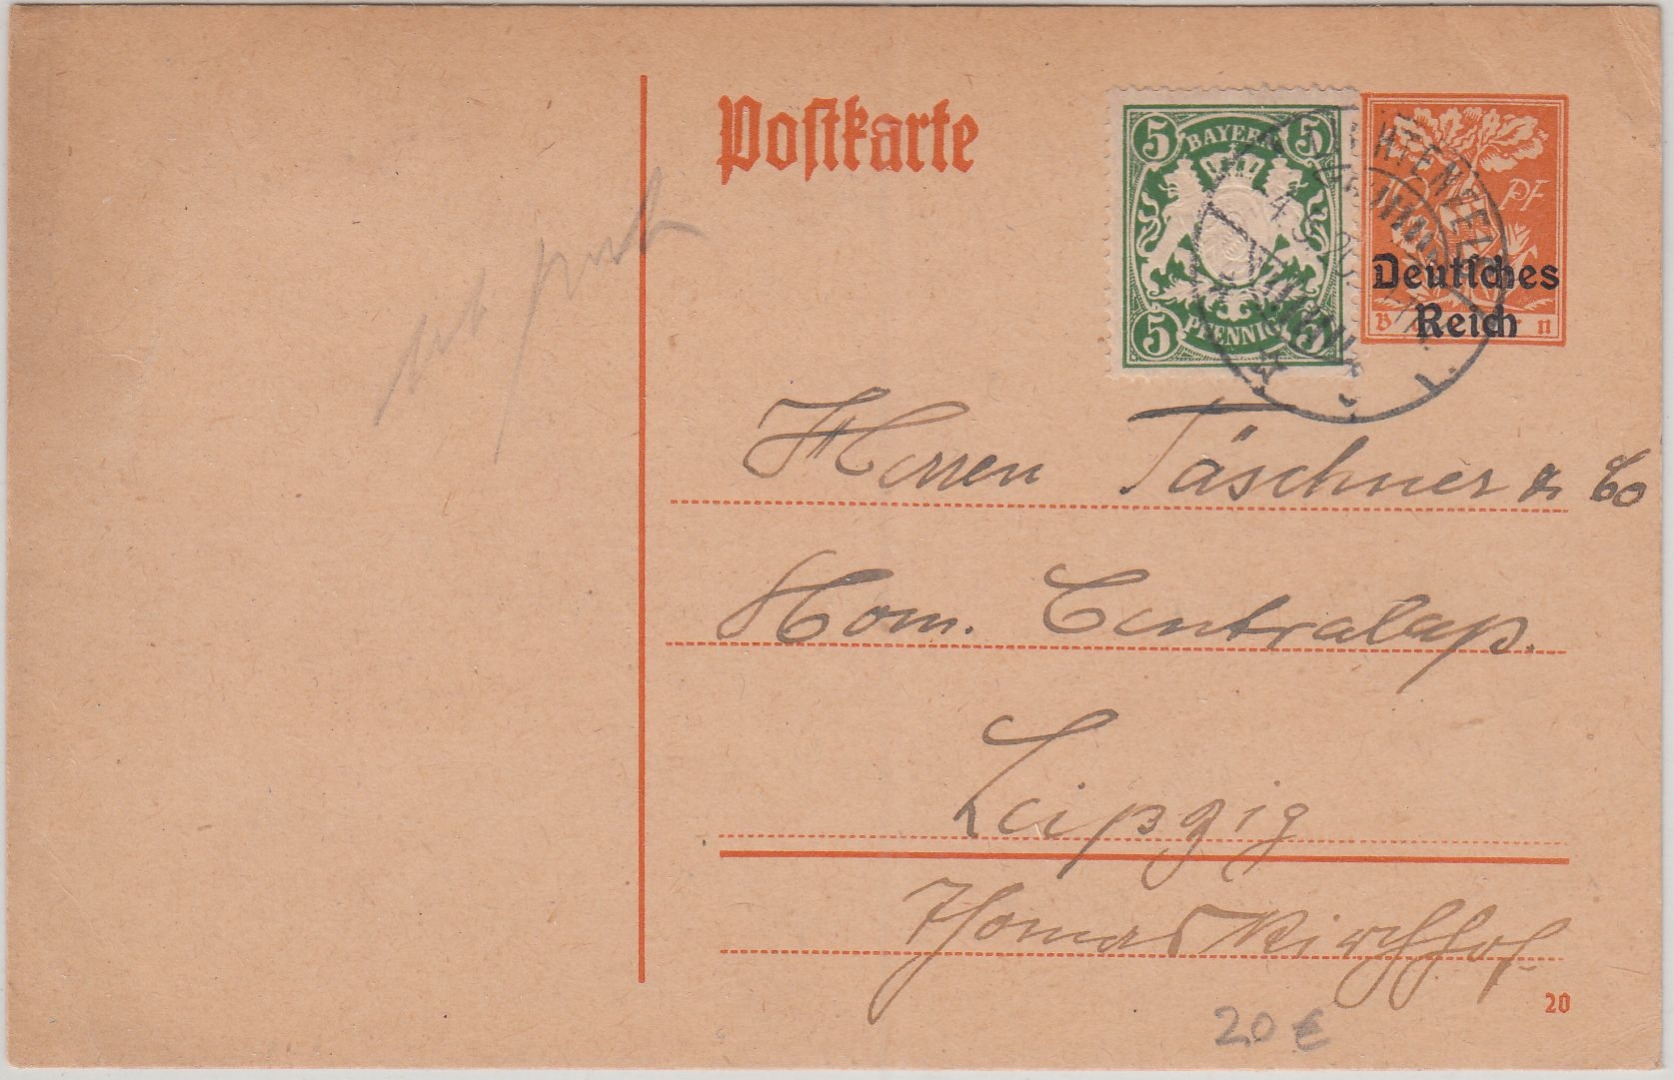 Postkarte
5 BAYERN 5
5 PFENNIG 5
LICHTENFELS
PF
Deutsches
Reich
Herren Täschner & Co
Hom. Centralap.
Leipzig
Thomaskirchhof
20
20 €